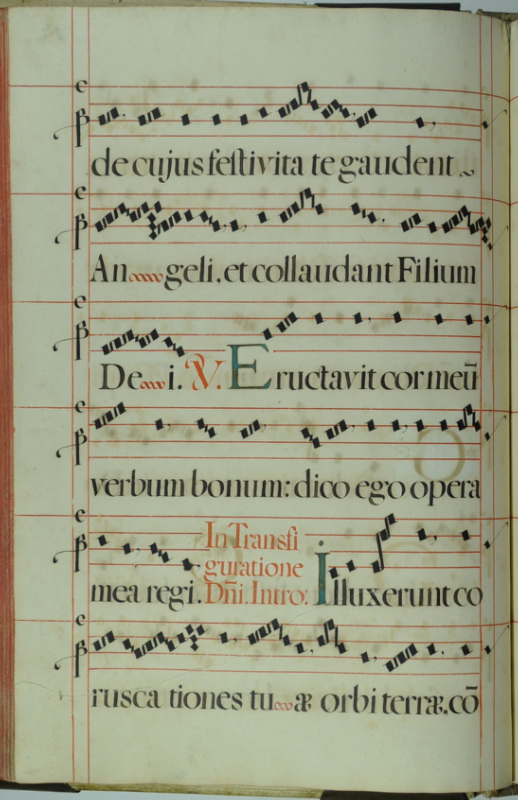 de cujus feſtivita te gaudent
An geli, et collaudant Filium
De i. V. Eructavit cor meū
verbum bonum: dico ego opera
mea regi. In Transfi
guratione
Dñi. Intro: Illuxerunt co
rusca tiones tu æ orbi terræ, cō